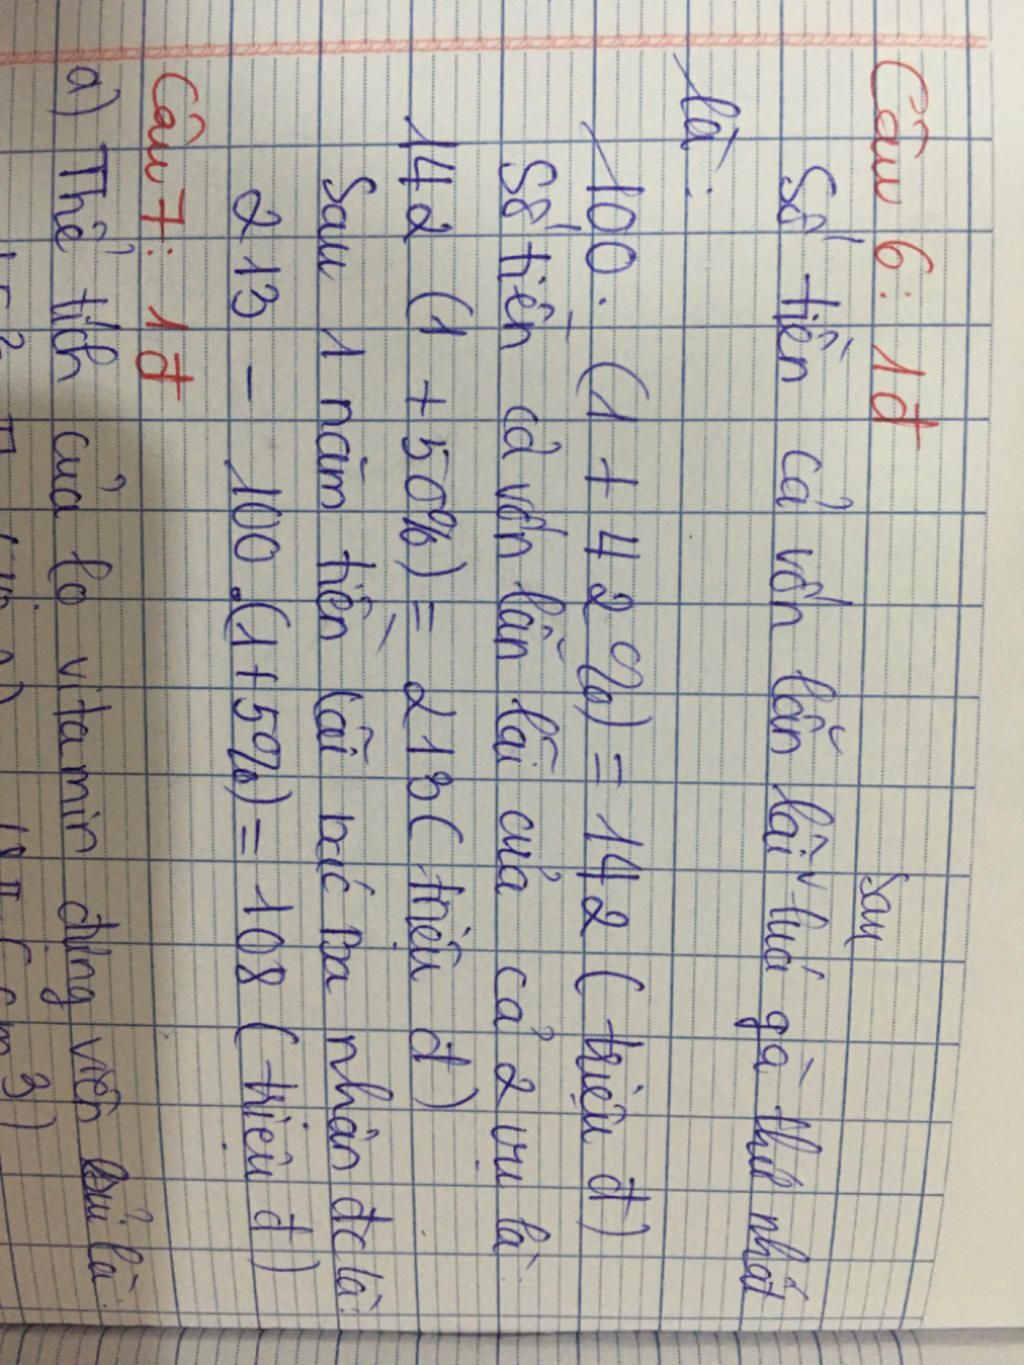 Câu 6: 1đ
Sau
Số tiền cả vốn lẫn lãi v lứa gà thứ nhất
là:
100. (1 + 42%) = 142 (triệu đ)
Số tiền cả vốn lẫn lãi của cả 2 vụ là
142 (1 + 50%) = 213 (triệu đ)
Sau 1 năm tiền lãi bác Ba nhận đc là:
213 - 100.(1+5%) = 108 (triệu đ)
Câu 7: 1đ
a) Thể tích của lọ vitamin dạng viên sủi là: